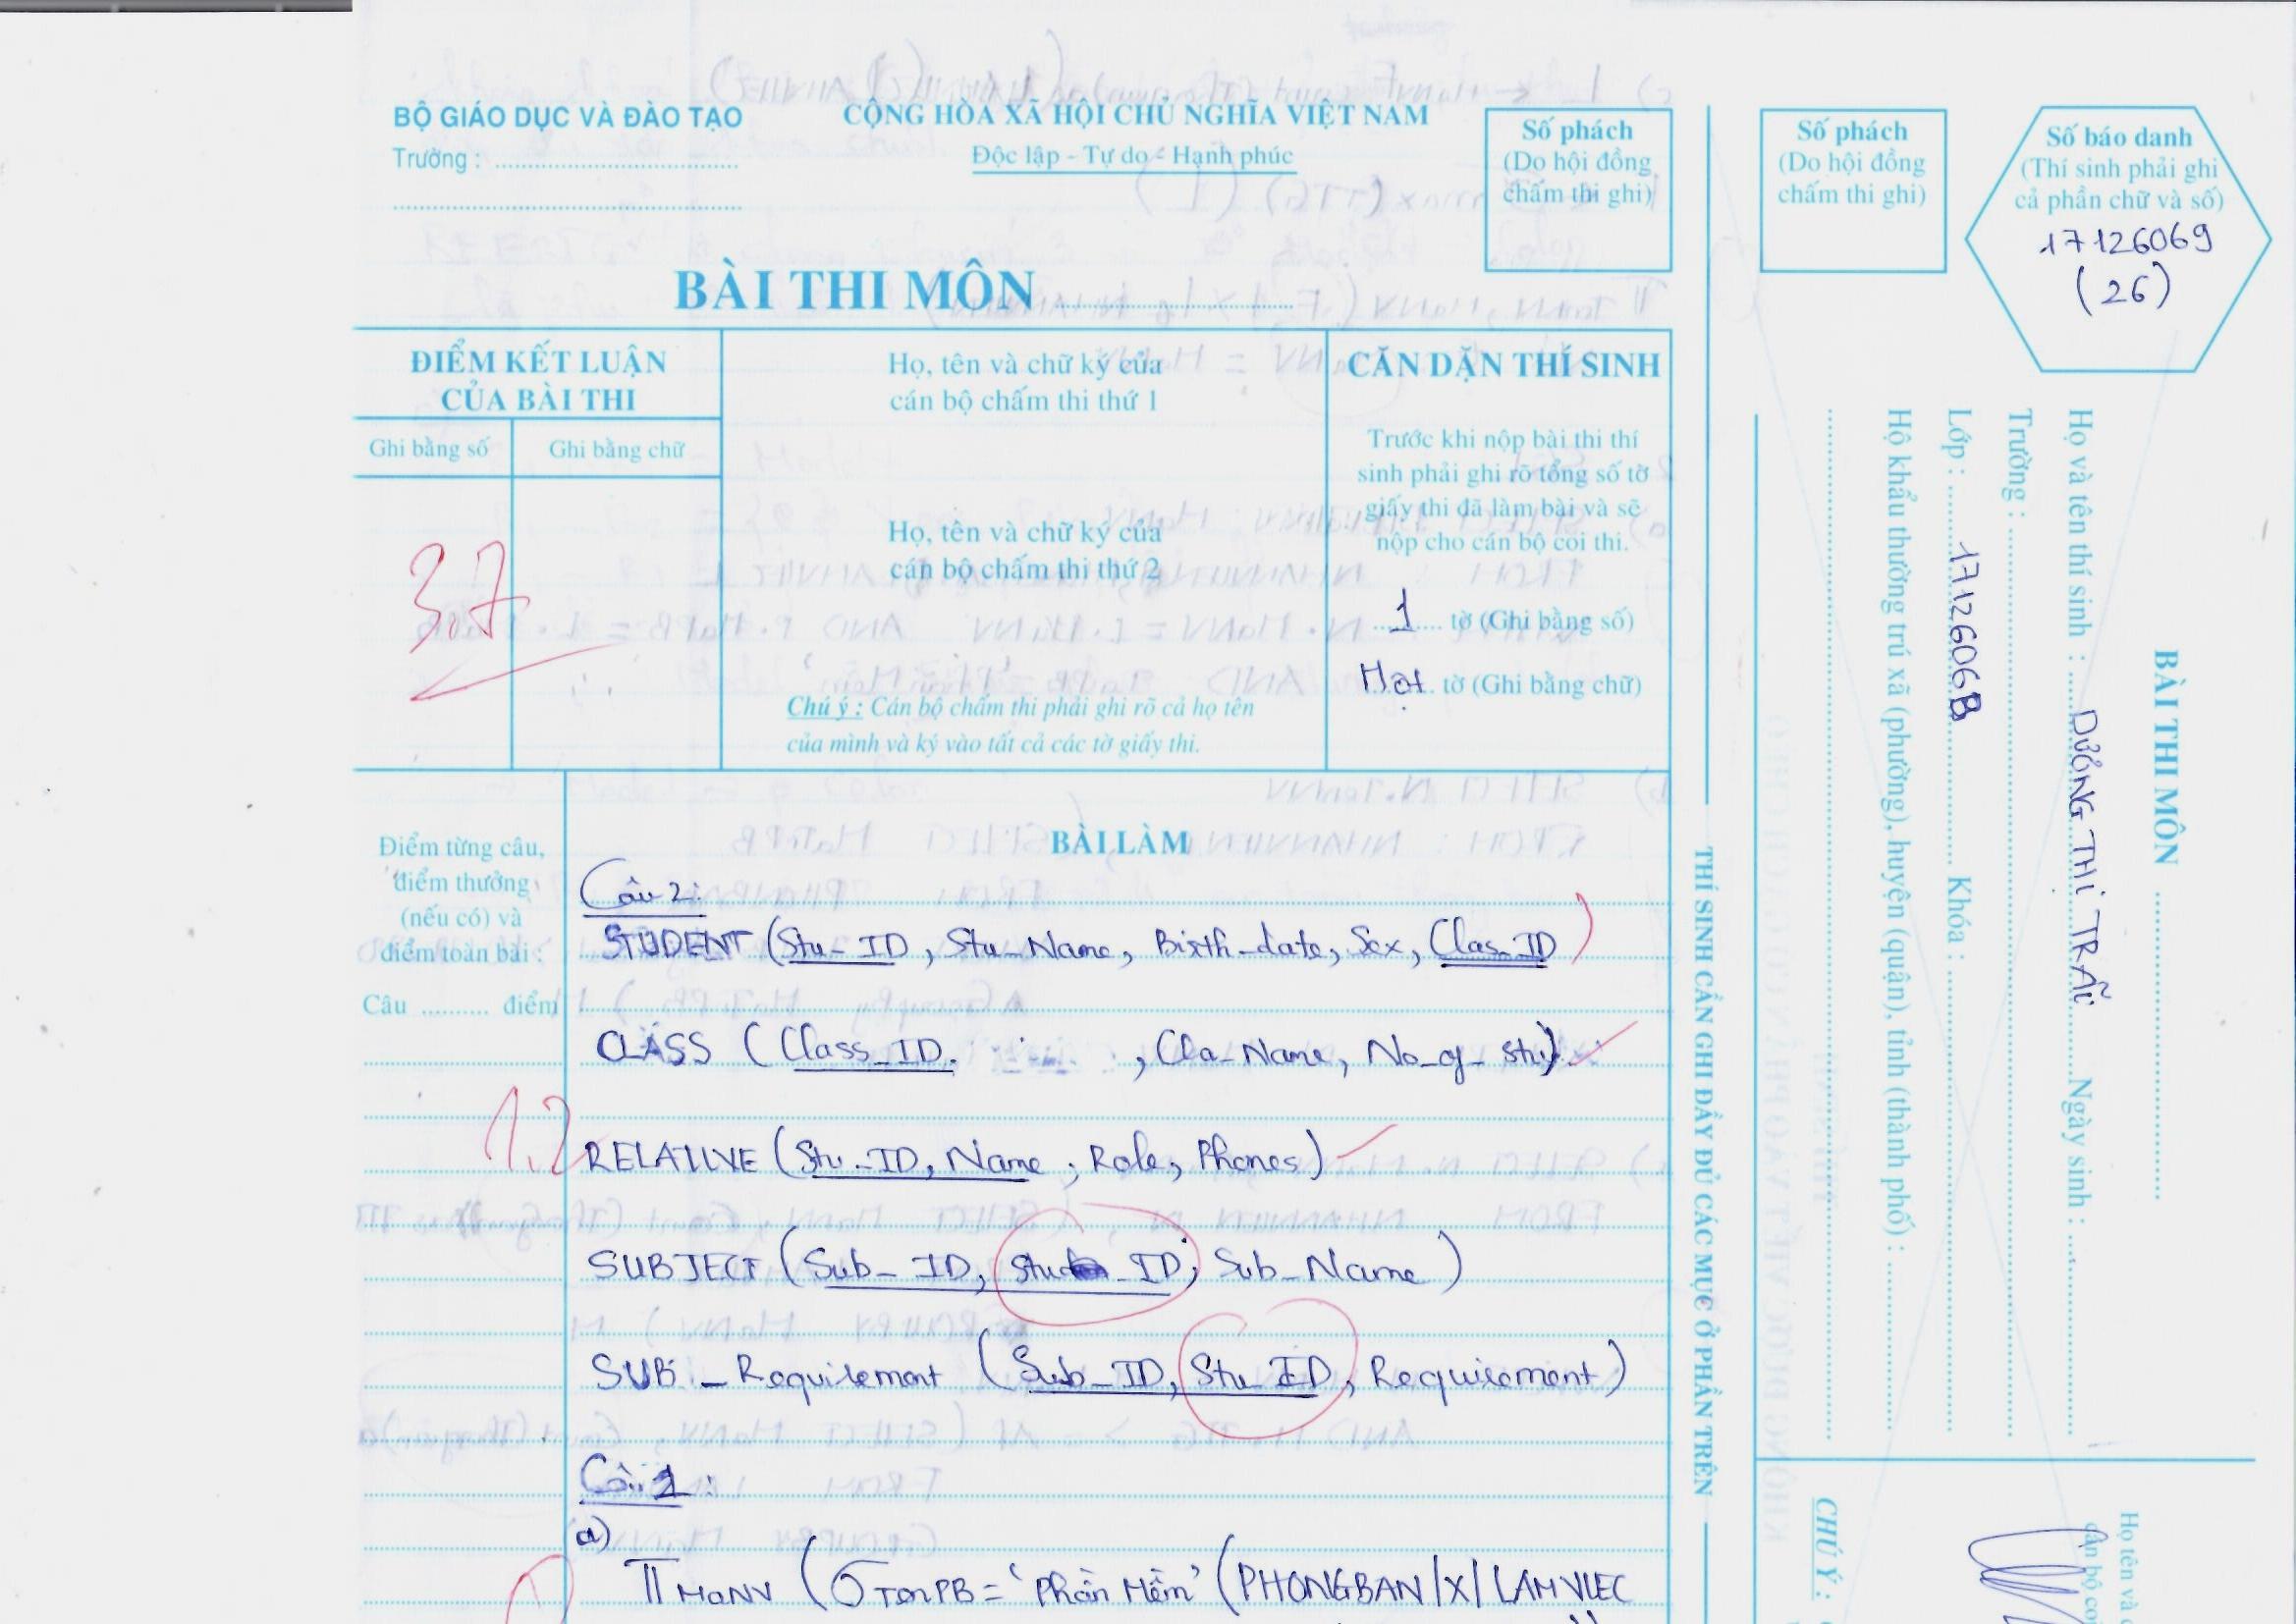 BỘ GIÁO DỤC VÀ ĐÀO TẠO
Trường :
CỘNG HÒA XÃ HỘI CHỦ NGHĨA VIỆT NAM
Độc lập - Tự do - Hạnh phúc
Số phách
(Do hội đồng
chấm thi ghi)
BÀI THI MÔN
ĐIỂM KẾT LUẬN
CỦA BÀI THI
Ghi bằng số
Ghi bằng chữ
3.7
Họ, tên và chữ ký của
cán bộ chấm thi thứ 1
Họ, tên và chữ ký của
cán bộ chấm thi thứ 2
Chú ý : Cán bộ chấm thi phải ghi rõ cả họ tên
của mình và ký vào tất cả các tờ giấy thi.
CĂN DẶN THÍ SINH
Trước khi nộp bài thi thí
sinh phải ghi rõ tổng số tờ
giấy thi đã làm bài và sẽ
nộp cho cán bộ coi thi.
1 tờ (Ghi bằng số)
Một tờ (Ghi bằng chữ)
Điểm từng câu,
điểm thưởng
(nếu có) và
điểm toàn bài :
Câu .......... điểm
1.2
BÀI LÀM
Câu 2:
STUDENT (Stu_ID, Stu_Name, Birth_date, Sex, Clas_ID)
CLASS (Class_ID, Cla_Name, No_of_stu)
RELATIVE (Stu_ID, Name, Role, Phones)
SUBJECT (Sub_ID, Stu_ID, Sub_Name)
SUB_Requirement (Sub_ID, Stu_ID, Requirement)
Câu 1:
a)
π MaNV (σ TenPB = 'Phần Mềm' (PHONGBAN |X| LAMVIEC
THÍ SINH CẦN GHI ĐẦY ĐỦ CÁC MỤC Ở PHẦN TRÊN
Số phách
(Do hội đồng
chấm thi ghi)
Số báo danh
(Thí sinh phải ghi
cả phần chữ và số)
17126069
(26)
BÀI THI MÔN
Họ và tên thí sinh : DƯƠNG THỊ TRÃI Ngày sinh :
Trường :
Lớp : 1712606B Khóa :
Hộ khẩu thường trú xã (phường), huyện (quận), tỉnh (thành phố) :
CHÚ Ý :
Họ tên và
cán bộ co